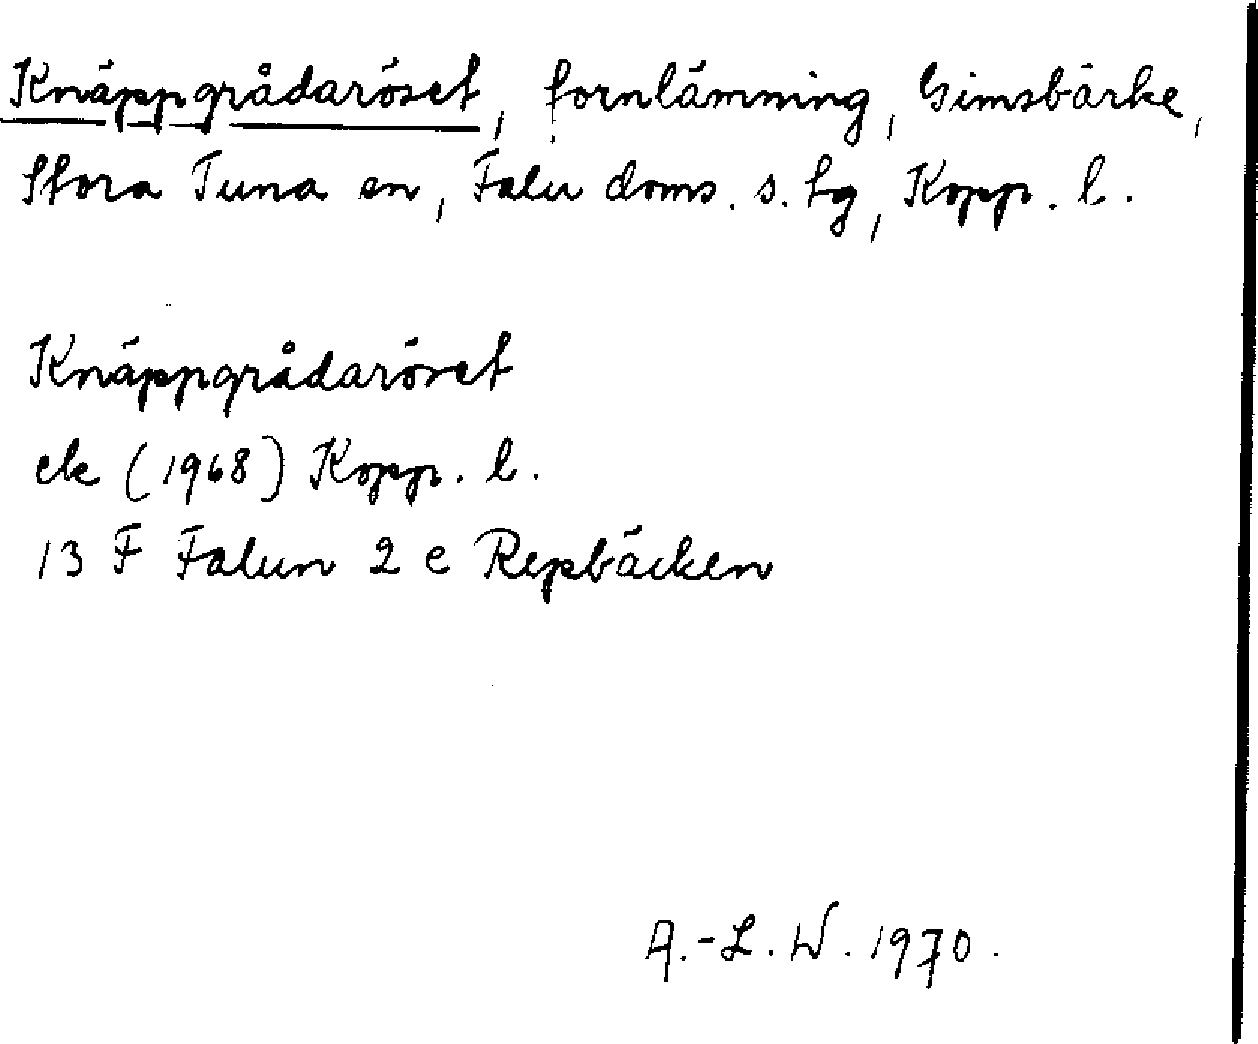 Knäppgrådaröset, fornlämning, Gimsbärke,
Stora Tuna sn, Falu doms. s. tg, Kopp. l.
Knäppgrådaröset
ek (1968) Kopp. l.
13 F Falun 2 e Repbäcken
A.-L. W. 1970.